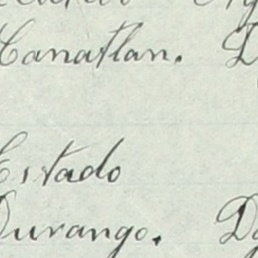 Canatlan. D
Estado
Durango. Dg